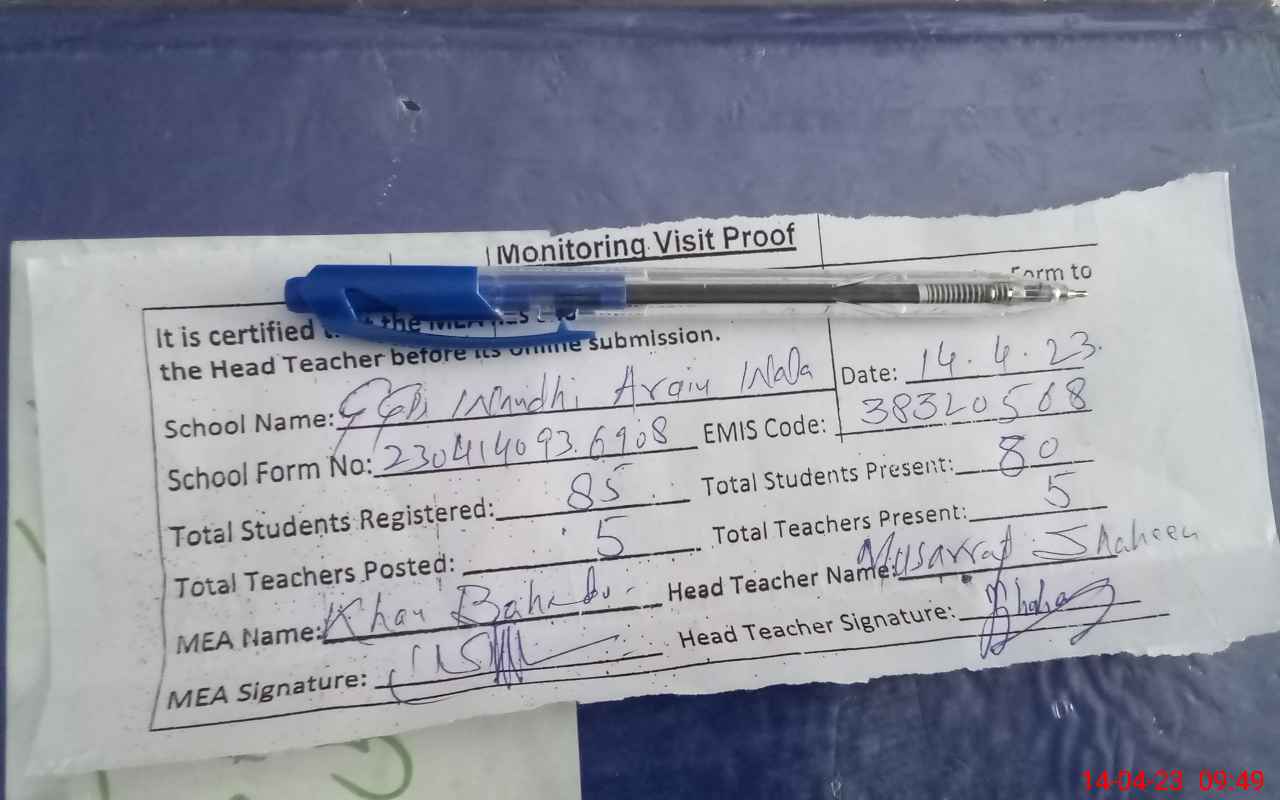 Monitoring Visit Proof
It is certified the MEA Form to
the Head Teacher before its online submission.
School Name: Arain Wala Date: 14.4.23.
School Form No: 230414093.6908 EMIS Code: 38320508
Total Students Registered: 85 Total Students Present: 80
Total Teachers Posted: 5 Total Teachers Present: 5
MEA Name: Khan Head Teacher Name: Musarrat Shaheen
MEA Signature: Head Teacher Signature:
14-04-23 09:49